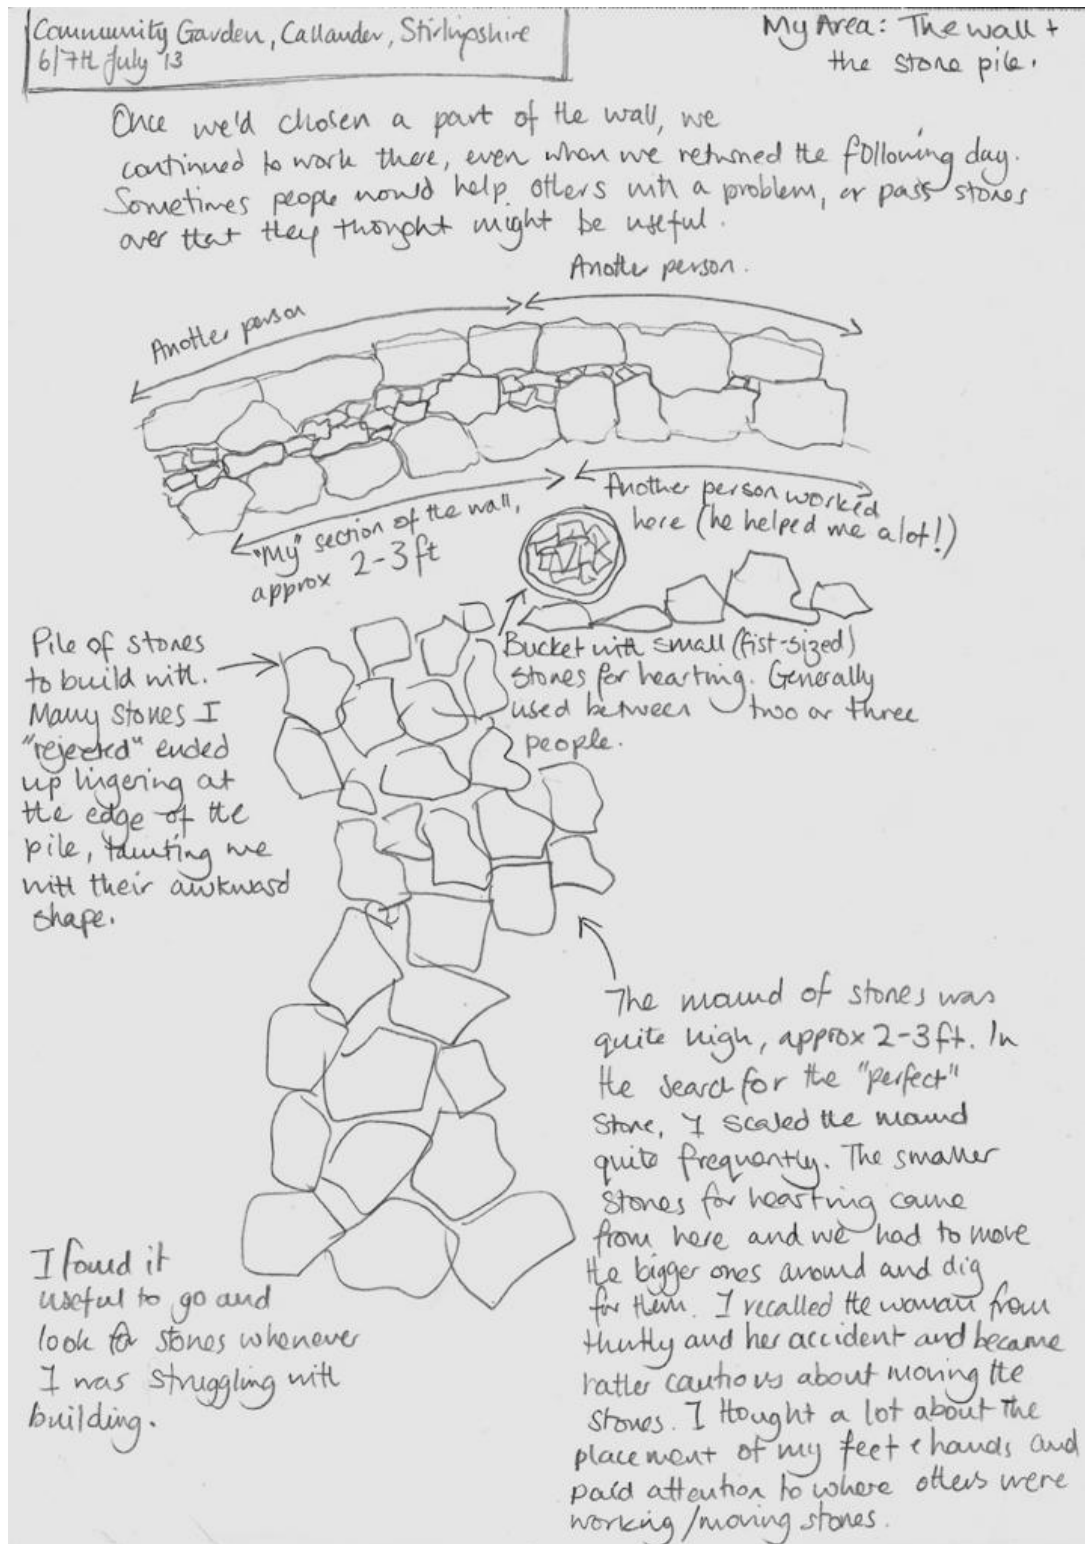 Community Garden, Callander, Stirlingshire
6/7th July '13
My Area: The wall +
the stone pile.
Once we'd chosen a part of the wall, we
continued to work there, even when we returned the following day.
Sometimes people would help others with a problem, or pass stones
over that they thought might be useful.
Another person.
Another person
"My" section of the wall,
approx 2-3 ft
Another person worked
here (he helped me alot!)
Bucket with small (fist-sized)
stones for hearting. Generally
used between two or three
people.
Pile of stones
to build with.
Many stones I
"rejected" ended
up lingering at
the edge of the
pile, taunting me
with their awkward
shape.
The mound of stones was
quite high, approx 2-3 ft. In
the search for the "perfect"
stone, I scaled the mound
quite frequently. The smaller
stones for hearting came
from here and we had to move
the bigger ones around and dig
for them. I recalled the woman from
Huntly and her accident and became
rather cautious about moving the
stones. I thought a lot about the
placement of my feet & hands and
paid attention to where others were
working/moving stones.
I found it
useful to go and
look for stones whenever
I was struggling with
building.